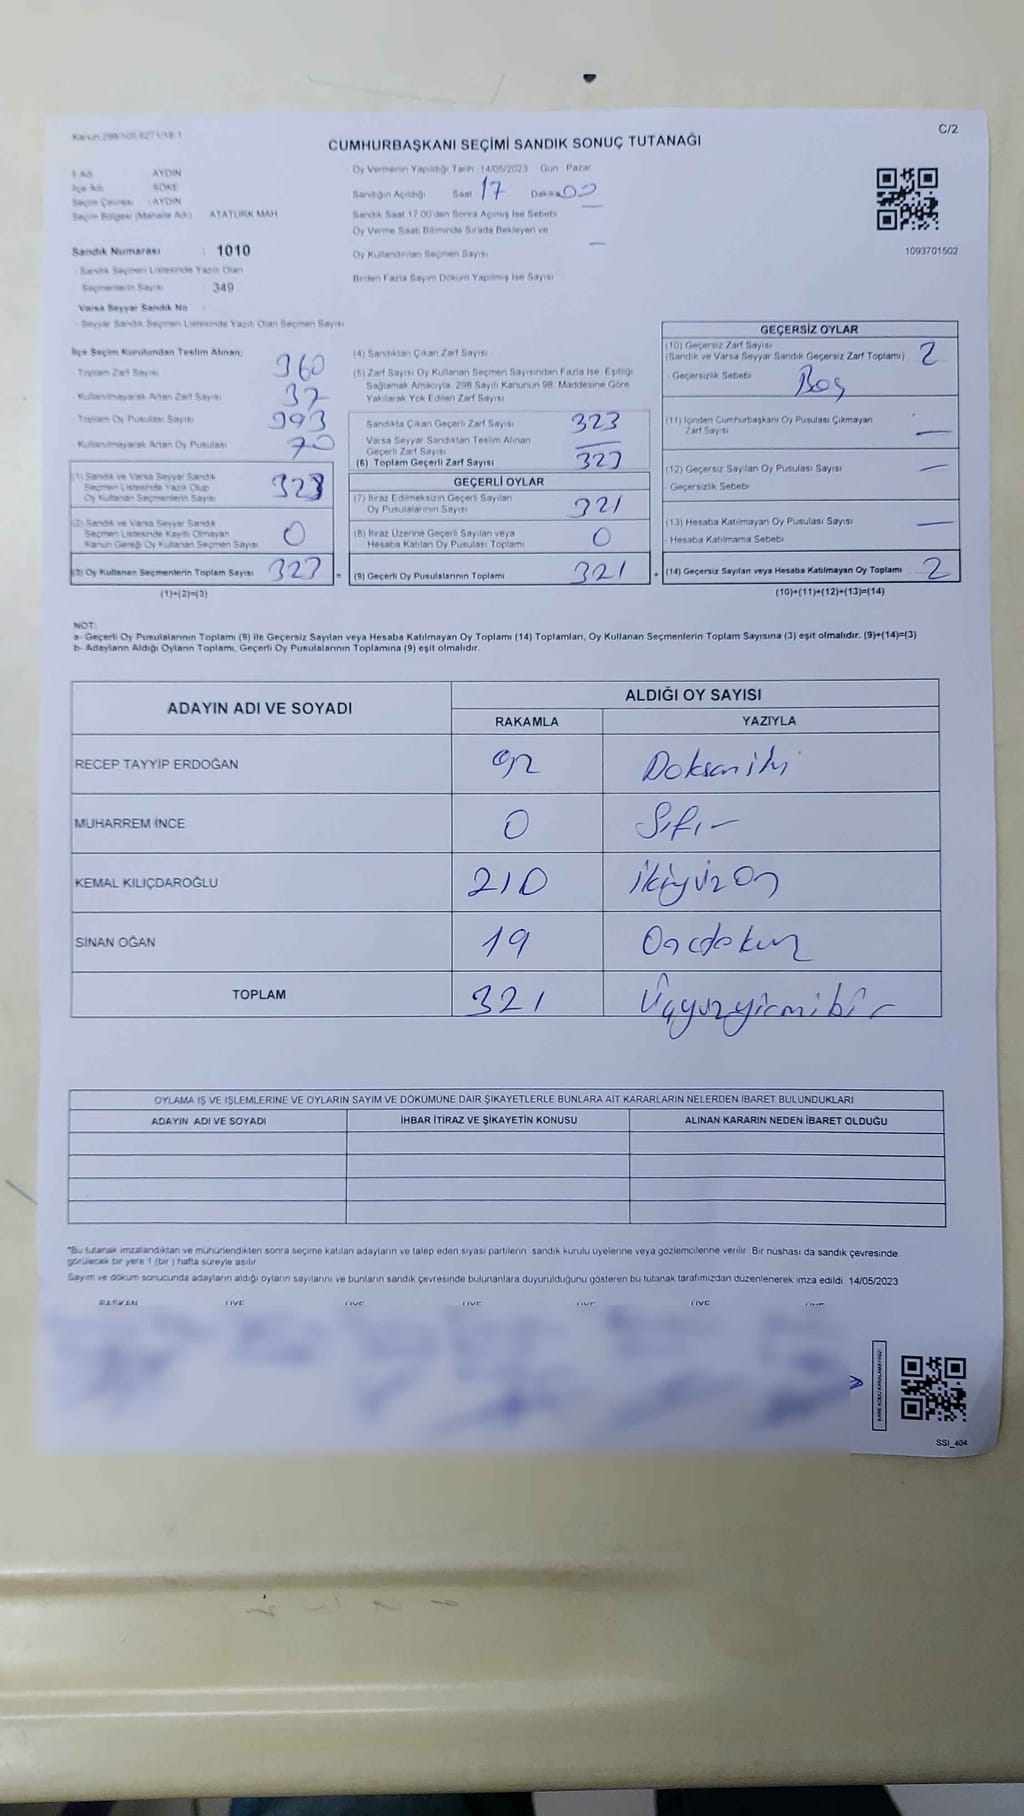 Kanun:298/105,6271/18.1
C/2
CUMHURBAŞKANI SEÇİMİ SANDIK SONUÇ TUTANAĞI
İl Adı AYDIN
İlçe Adı SÖKE
Seçim Çevresi : AYDIN
Seçim Bölgesi (Mahalle Adı) ATATÜRK MAH
Sandık Numarası : 1010
- Sandık Seçmen Listesinde Yazılı Olan
Seçmenlerin Sayısı 349
Varsa Seyyar Sandık No
- Seyyar Sandık Seçmen Listesinde Yazılı Olan Seçmen Sayısı
Oy Vermenin Yapıldığı Tarih :14/05/2023 Gün: Pazar
Sandığın Açıldığı Saat 17 Dakika 00
Sandık Saat 17.00'den Sonra Açılmış İse Sebebi
Oy Verme Saati Bitiminde Sırada Bekleyen ve
Oy Kullandırılan Seçmen Sayısı
Birden Fazla Sayım Döküm Yapılmış İse Sayısı
1093701502
İlçe Seçim Kurulundan Teslim Alınan;
- Toplam Zarf Sayısı 360
- Kullanılmayarak Artan Zarf Sayısı 37
- Toplam Oy Pusulası Sayısı 393
- Kullanılmayarak Artan Oy Pusulası 70
(1) Sandık ve Varsa Seyyar Sandık
Seçmen Listesinde Yazılı Olup
Oy Kullanan Seçmenlerin Sayısı 323
(2) Sandık ve Varsa Seyyar Sandık
Seçmen Listesinde Kayıtlı Olmayan
Kanun Gereği Oy Kullanan Seçmen Sayısı 0
(3) Oy Kullanan Seçmenlerin Toplam Sayısı 323 =
(1)+(2)=(3)
(4) Sandıktan Çıkan Zarf Sayısı
(5) Zarf Sayısı Oy Kullanan Seçmen Sayısından Fazla İse, Eşitliği
Sağlamak Amacıyla, 298 Sayılı Kanunun 98. Maddesine Göre
Yakılarak Yok Edilen Zarf Sayısı
Sandıkta Çıkan Geçerli Zarf Sayısı 323
Varsa Seyyar Sandıktan Teslim Alınan
Geçerli Zarf Sayısı
(6) Toplam Geçerli Zarf Sayısı 323
GEÇERLİ OYLAR
(7) İtiraz Edilmeksizin Geçerli Sayılan
Oy Pusulalarının Sayısı 321
(8) İtiraz Üzerine Geçerli Sayılan veya
Hesaba Katılan Oy Pusulası Toplamı 0
(9) Geçerli Oy Pusulalarının Toplamı 321 +
GEÇERSİZ OYLAR
(10) Geçersiz Zarf Sayısı
(Sandık ve Varsa Seyyar Sandık Geçersiz Zarf Toplamı) 2
- Geçersizlik Sebebi Boş
(11) İçinden Cumhurbaşkanı Oy Pusulası Çıkmayan
Zarf Sayısı —
(12) Geçersiz Sayılan Oy Pusulası Sayısı —
- Geçersizlik Sebebi
(13) Hesaba Katılmayan Oy Pusulası Sayısı —
- Hesaba Katılmama Sebebi
(14) Geçersiz Sayılan veya Hesaba Katılmayan Oy Toplamı 2
(10)+(11)+(12)+(13)=(14)
NOT:
a- Geçerli Oy Pusulalarının Toplamı (9) ile Geçersiz Sayılan veya Hesaba Katılmayan Oy Toplamı (14) Toplamları, Oy Kullanan Seçmenlerin Toplam Sayısına (3) eşit olmalıdır. (9)+(14)=(3)
b- Adayların Aldığı Oyların Toplamı, Geçerli Oy Pusulalarının Toplamına (9) eşit olmalıdır.
ADAYIN ADI VE SOYADI ALDIĞI OY SAYISI
RAKAMLA YAZIYLA
RECEP TAYYİP ERDOĞAN 92 Doksaniki
MUHARREM İNCE 0 Sıfır
KEMAL KILIÇDAROĞLU 210 ikiyüzon
SİNAN OĞAN 19 Ondokuz
TOPLAM 321 Üçyüzyirmibir
OYLAMA İŞ VE İŞLEMLERİNE VE OYLARIN SAYIM VE DÖKÜMÜNE DAİR ŞİKAYETLERLE BUNLARA AİT KARARLARIN NELERDEN İBARET BULUNDUKLARI
ADAYIN ADI VE SOYADI İHBAR İTİRAZ VE ŞİKAYETİN KONUSU ALINAN KARARIN NEDEN İBARET OLDUĞU
*Bu tutanak imzalandıktan ve mühürlendikten sonra seçime katılan adayların ve talep eden siyasi partilerin sandık kurulu üyelerine veya gözlemcilerine verilir. Bir nüshası da sandık çevresinde
görülecek bir yere 1 (bir) hafta süreyle asılır.
Sayım ve döküm sonucunda adayların aldığı oyların sayılarını ve bunların sandık çevresinde bulunanlara duyurulduğunu gösteren bu tutanak tarafımızdan düzenlenerek imza edildi. 14/05/2023
BAŞKAN ÜYE ÜYE ÜYE ÜYE ÜYE ÜYE
KARE KODU KARALAMAYINIZ!
SSİ_404